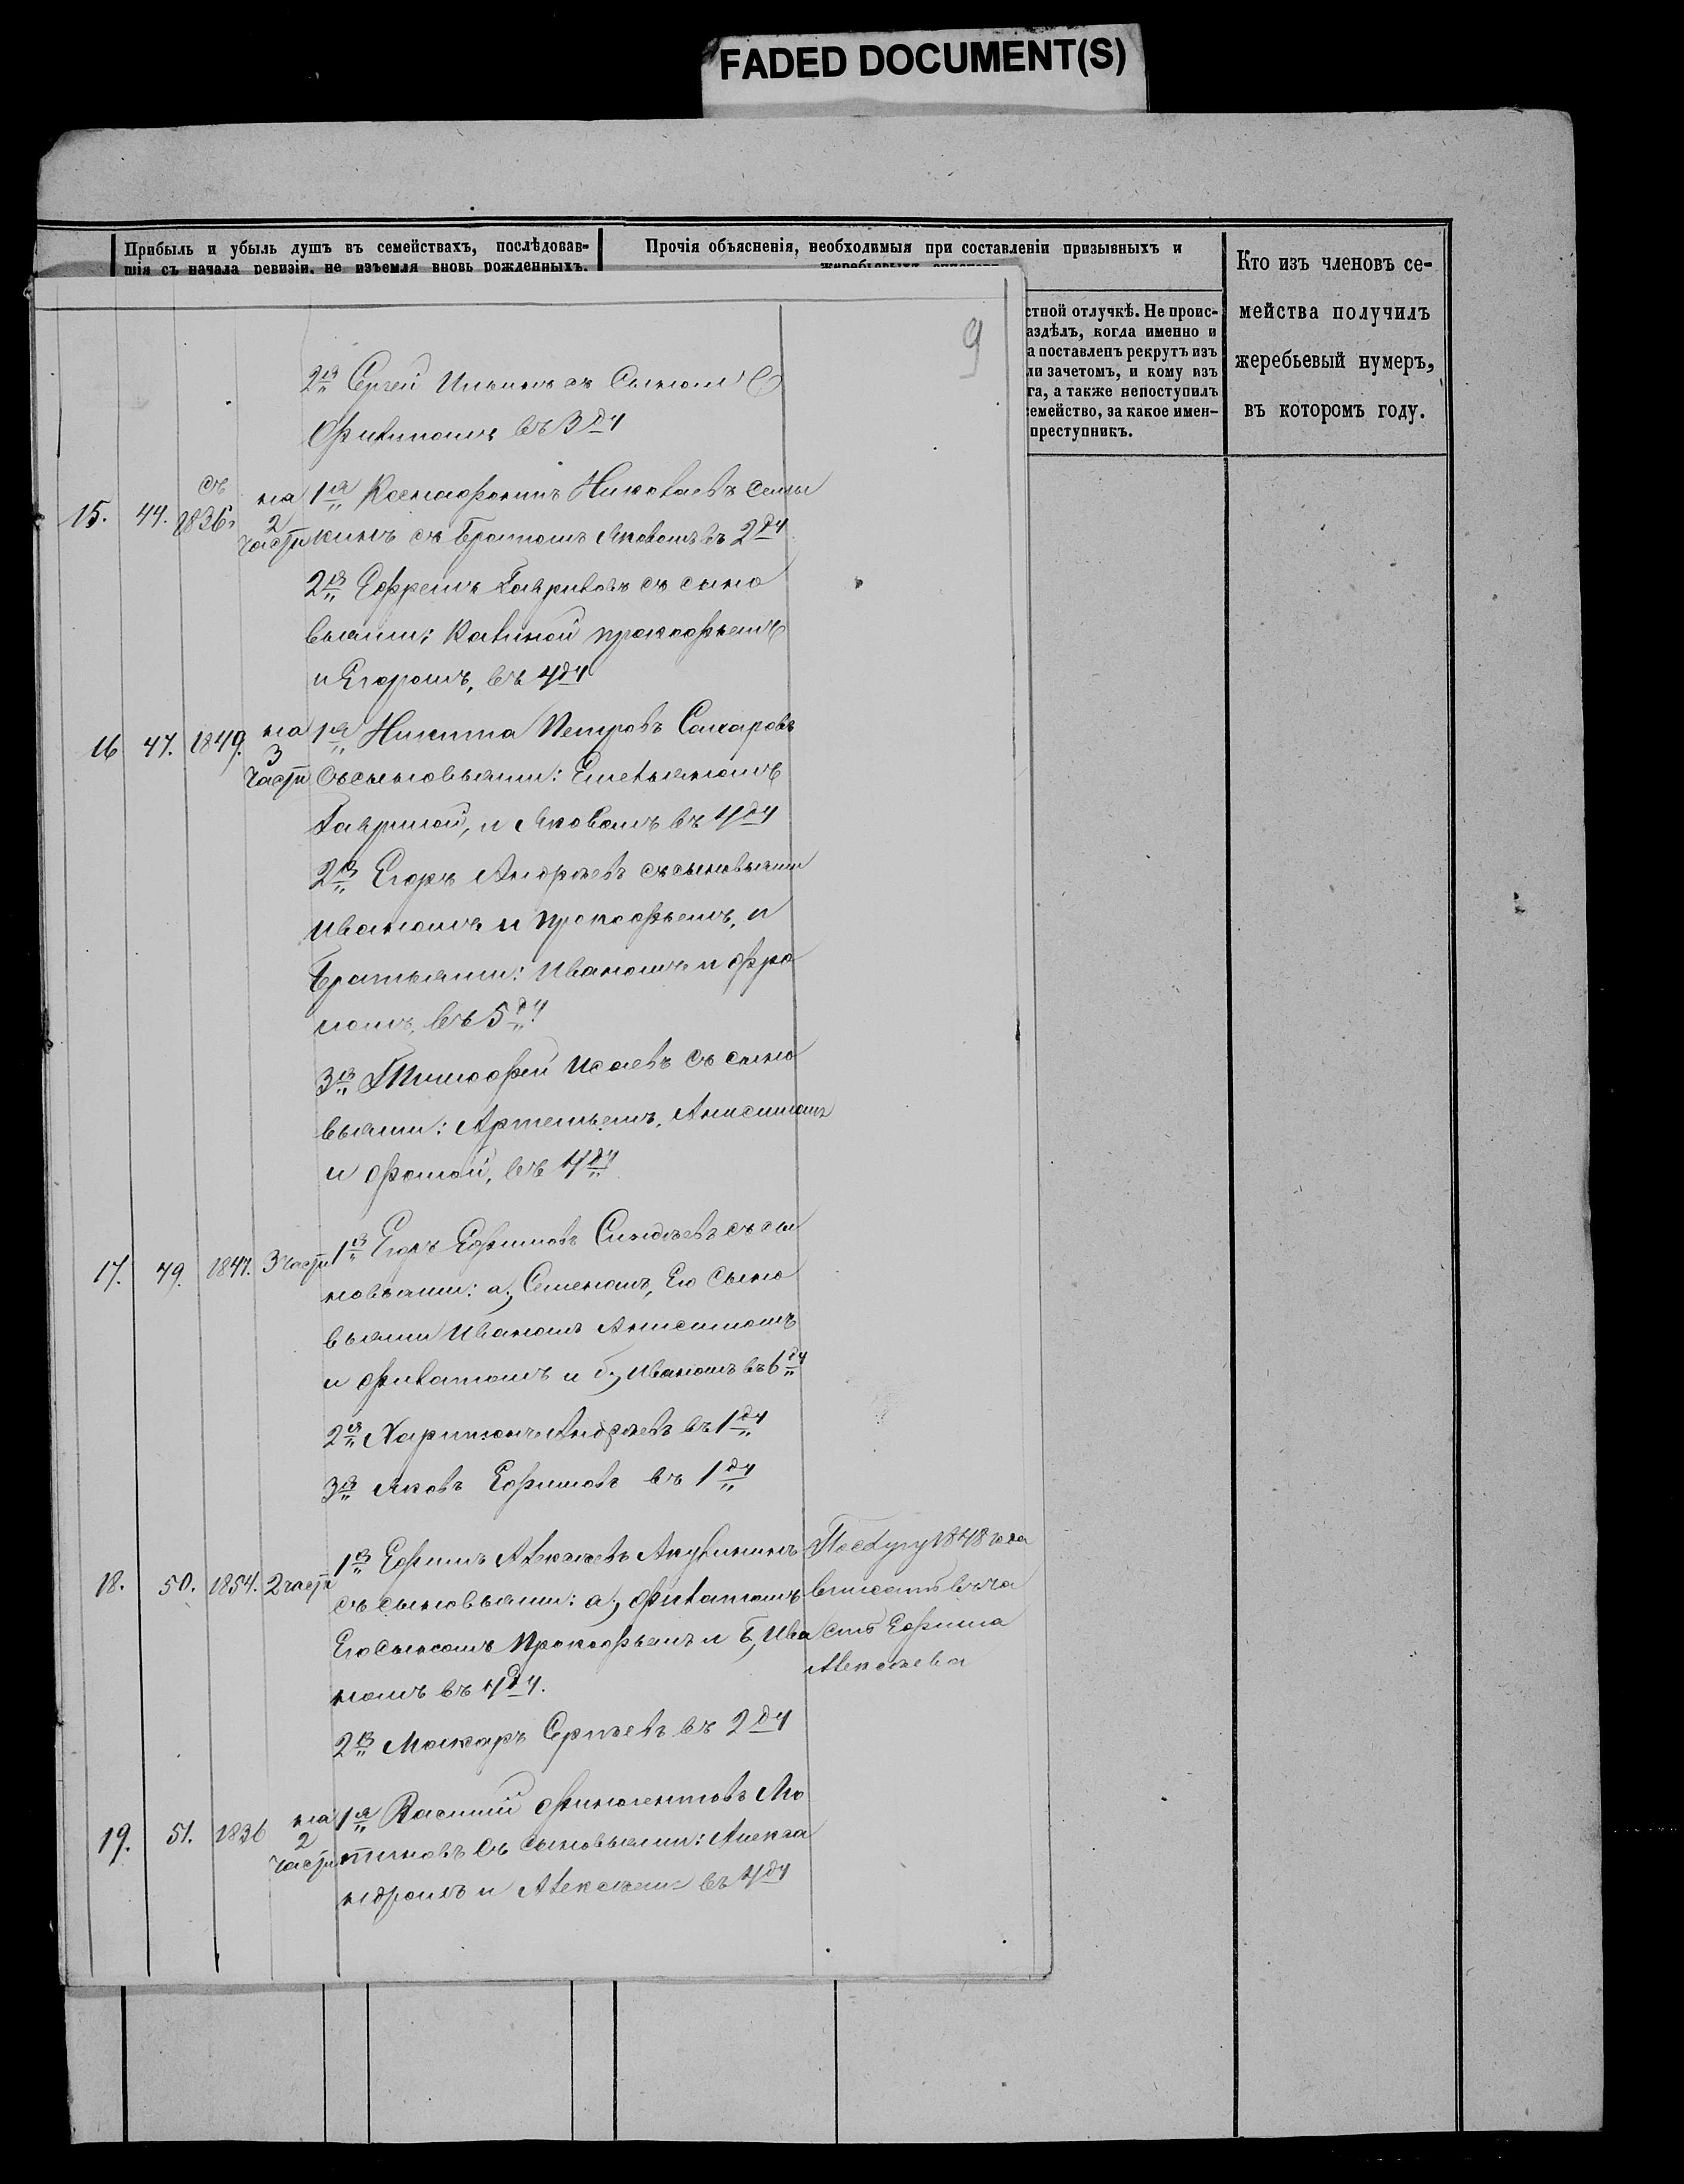 FADED DOCUMENT(S)
Прибыль и убыль душъ въ семействахъ, послѣдовав-
шія съ начала ревизіи, не изъемля вновь рожденныхъ.
Прочія объясненія, необходимыя при составленіи призывныхъ и
жеребьевыхъ списковъ
стной отлучкѣ. Не проис-
аздѣлъ, когда именно и
а поставленъ рекрутъ изъ
ли зачетомъ, и кому изъ
га, а также непоступилъ
семейство, за какое имен-
преступникъ.
Кто изъ членовъ се-
мейства получилъ
жеребьевый нумеръ,
въ которомъ году.
9
2я Сергей Ильинъ съ Сыномъ
Филипомъ въ 3 дч
15. 44. съ 1836 на 2 части 1я Ксенофонтъ Николаевъ Семы
кинъ съ Братомъ Яковомъ въ 2 дч
2я Ефремъ Гавриловъ съ сыно
вьями: Калиной Прокофьемъ
и Егоромъ, въ 4 дч
16 47. 1849. на 3 части 1я Никита Петровъ Сахаровъ
Съ сыновьями: Емельяномъ
Гаврилой, и Яковомъ въ 4 дч
2я Егоръ Андреевъ съ сыновьями
Иваномъ и Прокофьемъ, и
Братьями: Иваномъ и Фро
ломъ, въ 5 дч
3я Тимофей Исаевъ съ сыно
вьями: Артемьемъ, Анисимомъ
и Фомой, въ 4 дч
17. 49. 1847. 3 части 1я Егоръ Ефимовъ Синдяевъ съ сы
новьями: а, Семеномъ, Его Сыно
вьями Иваномъ Анисимомъ
и Филатомъ и б, Иваномъ въ 6 дч
2я Харитонъ Андреевъ въ 1 дч
3я Яковъ Ефимовъ въ 1 дч
18. 50. 1854. 2 части 1я Ефимъ Алексеевъ Акулининъ
съ сыновьями: а, Филатомъ
Его Сыномъ Прокофьемъ и б, Ива
номъ въ 4 дч.
2я Макаръ Сергеевъ въ 2 дч
1848 года
вписать въ ча
сть Ефима
Алексеева
19. 51. 1836 на 2 части 1я Василий
съ сыновьями: Алекса
ндромъ и Алексеемъ въ 4 дч